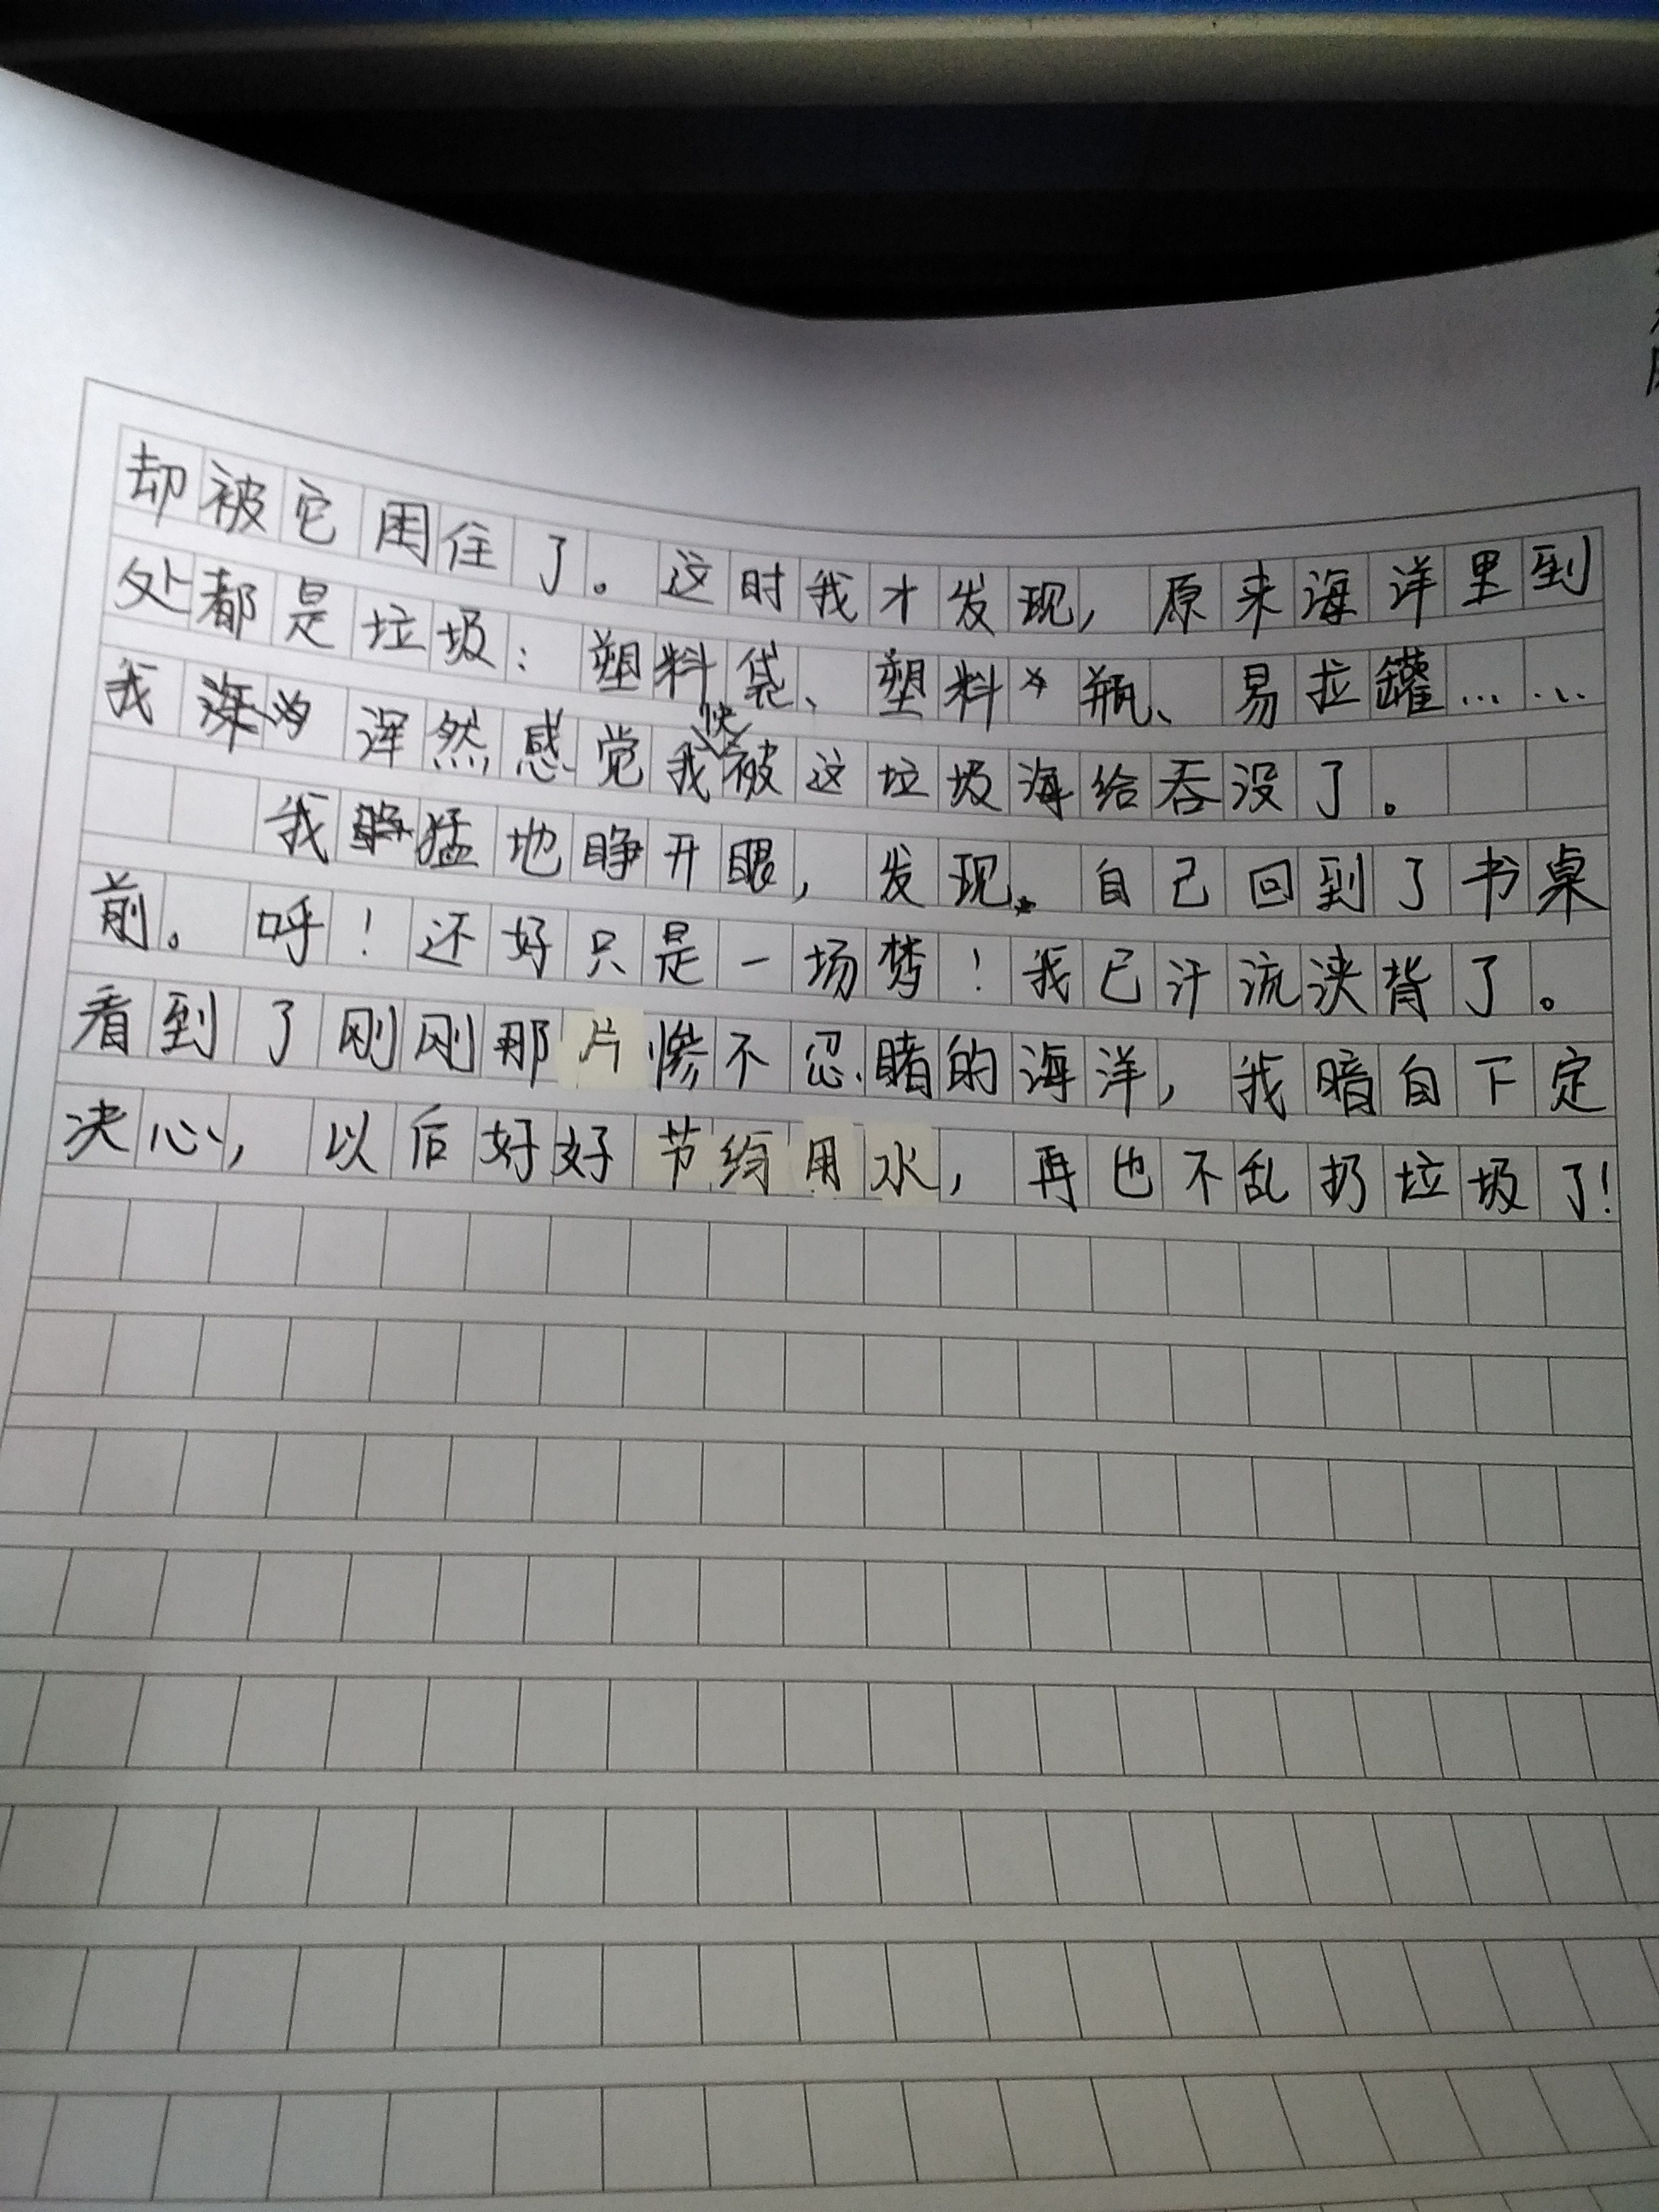 却被它困住了。这时我才发现，原来海洋里到
处都是垃圾：塑料袋、塑料瓶、易拉罐……
我浑然感觉我快被这垃圾海给吞没了。
我猛地睁开眼，发现自己回到了书桌
前。呼！还好只是一场梦！我已汗流浃背了。
看到了刚刚那片惨不忍睹的海洋，我暗自下定
决心，以后好好节约用水，再也不乱扔垃圾了！